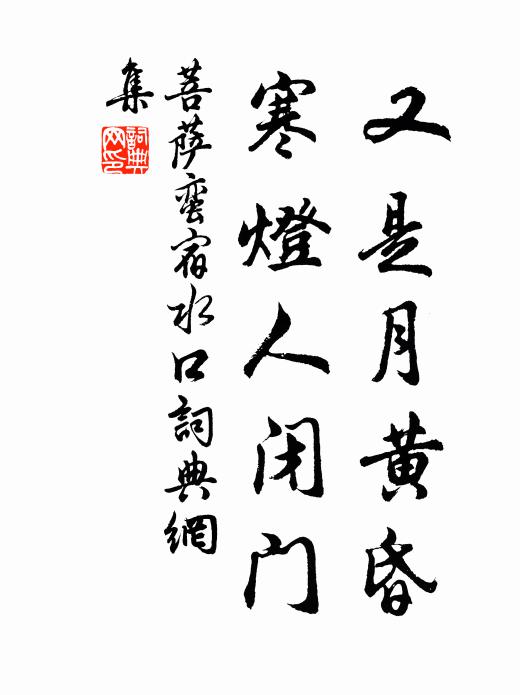 又是月黄昏
寒燈人闭门
菩萨蛮宿水口詞典網
集
詞典网印